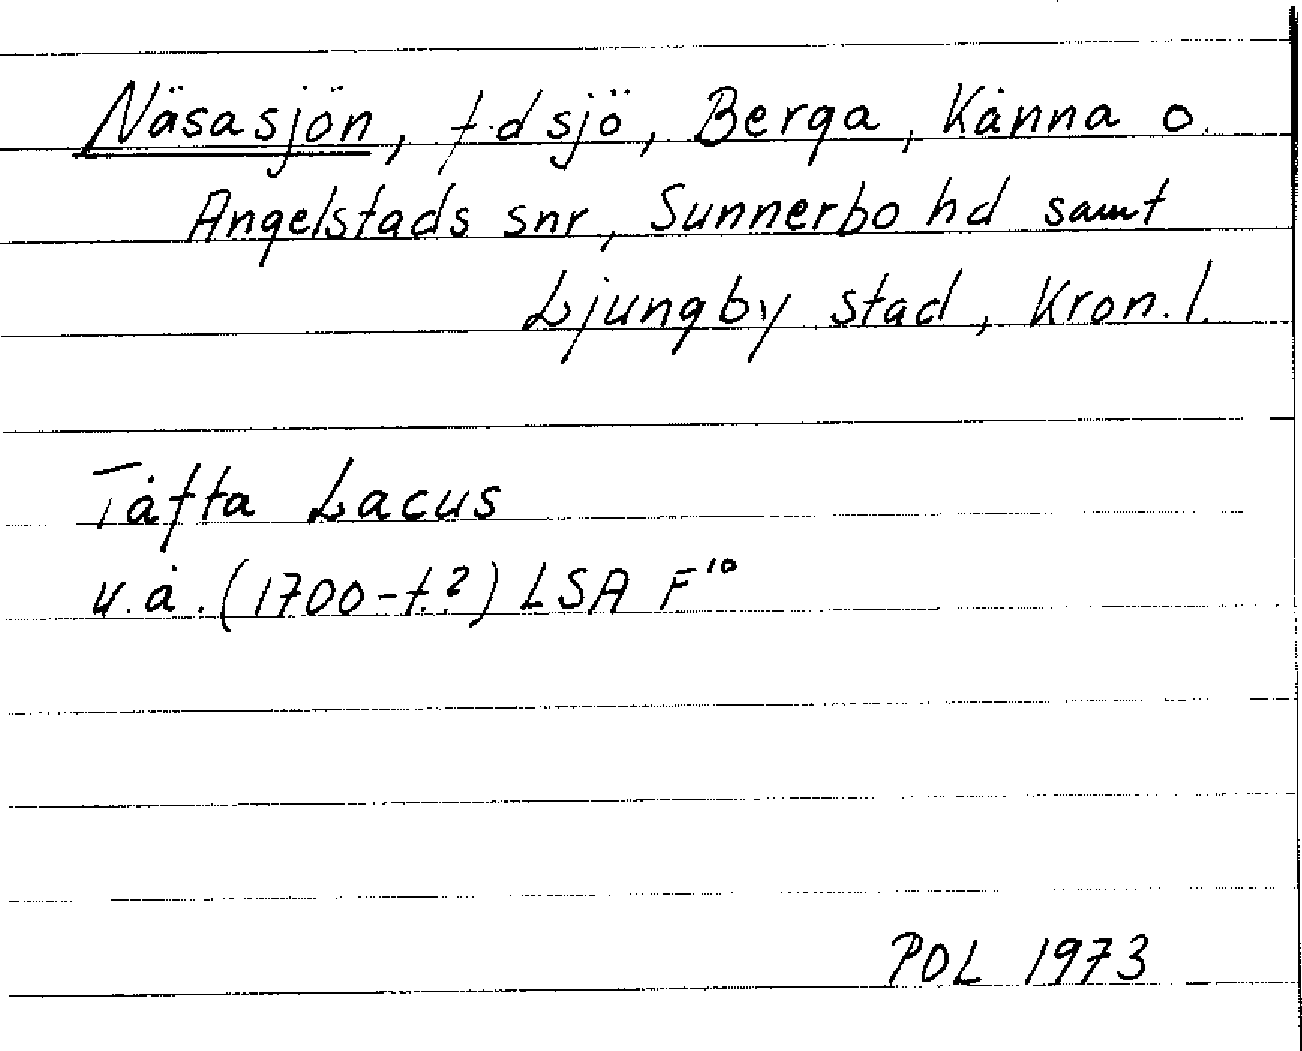 Näsasjön, f.d sjö, Berga, Kånna o.
Angelstads snr, Sunnerbo hd samt
Ljungby stad, Kron. l.
Tåfta Lacus
u.å. (1700-t.?) LSA F¹⁰
POL 1973